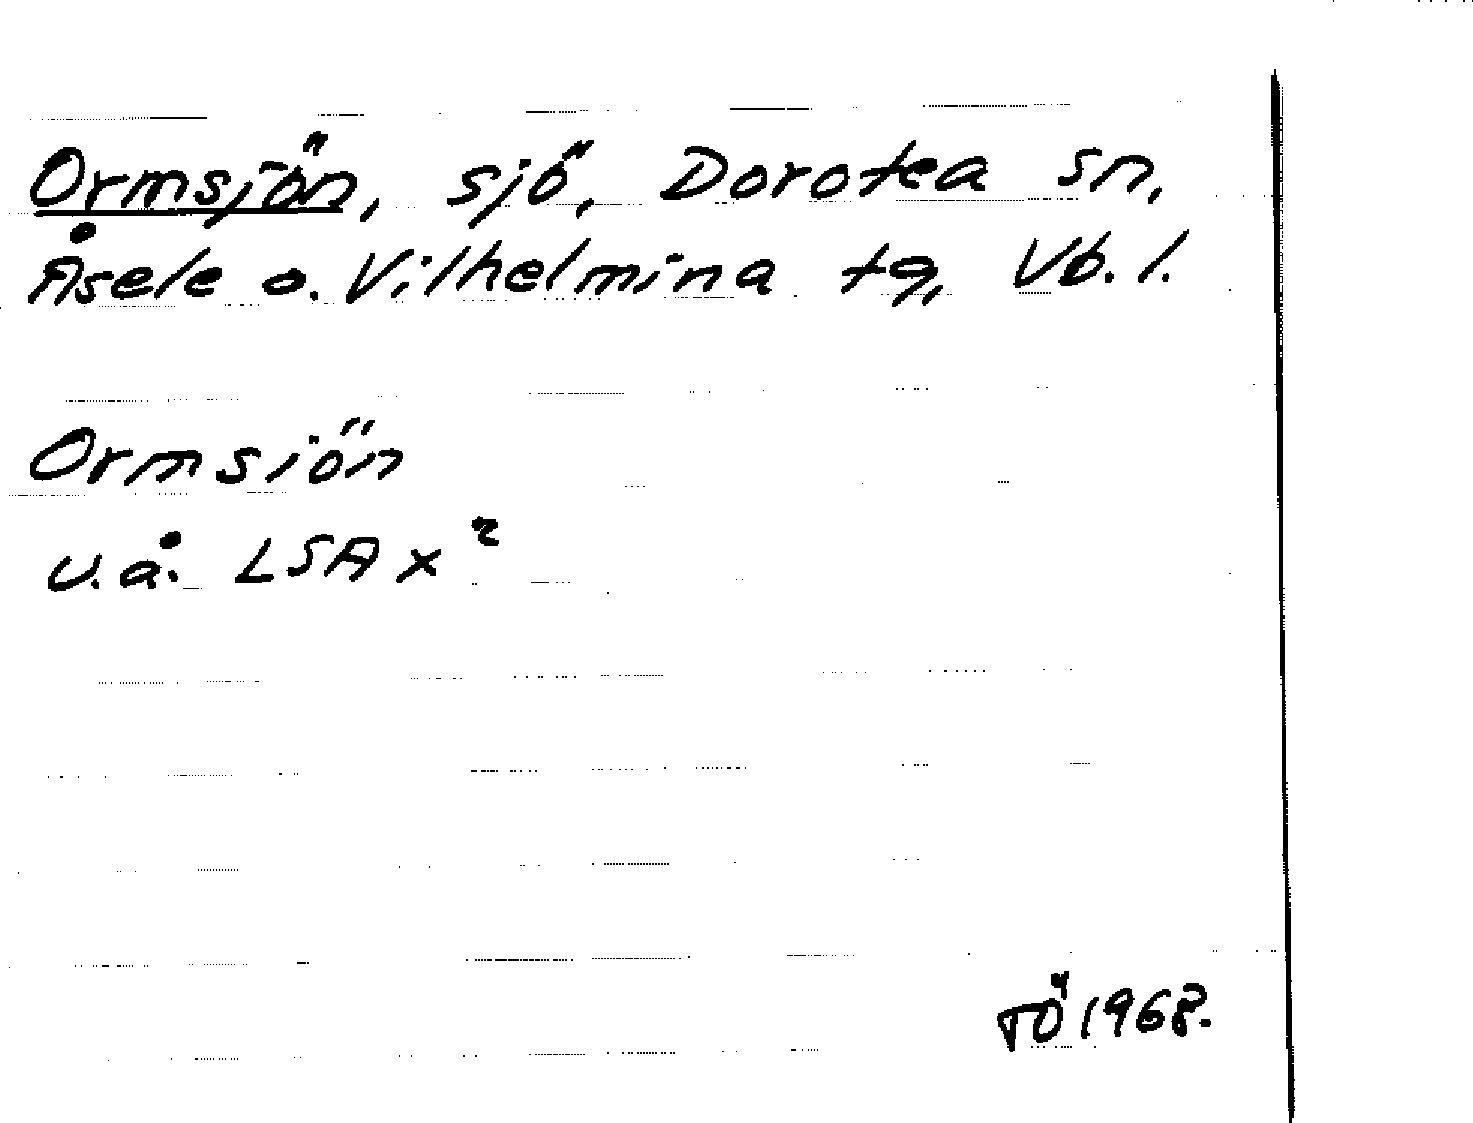 Ormsjön, sjö, Dorotea sn,
Åsele o. Vilhelmina tg, Vb. l.
Ormsiön
u.å. LSA x²
TÖ 1968.